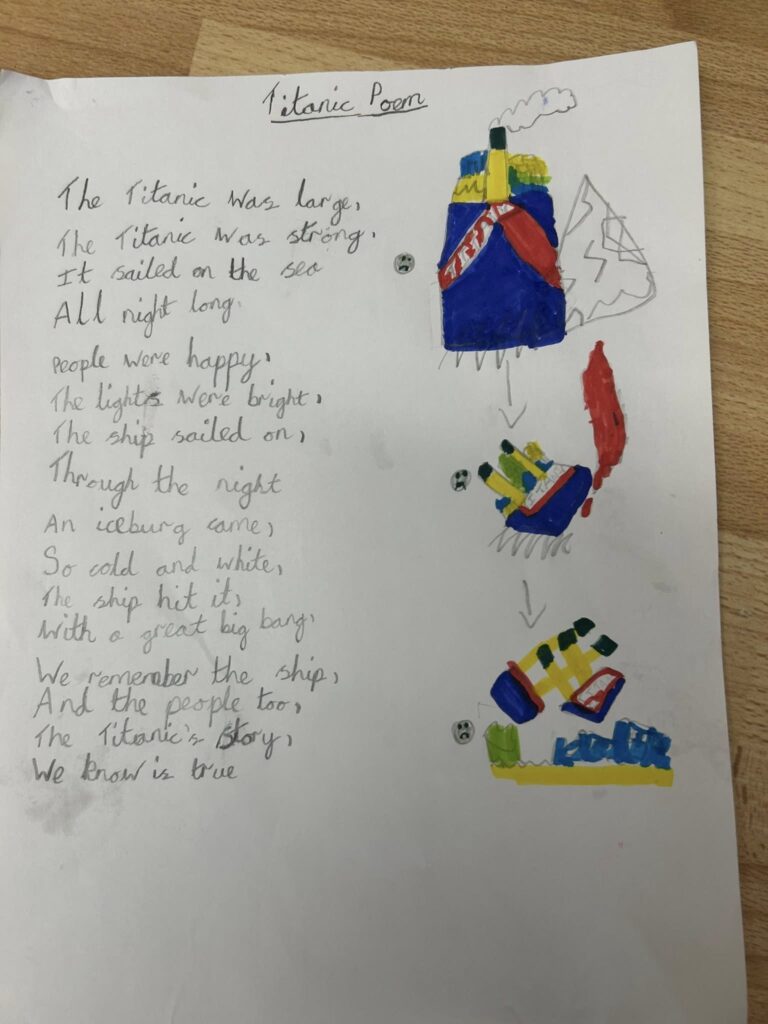 Titanic Poem
The Titanic was large,
The Titanic was strong.
It sailed on the sea
All night long.
People were happy,
The lights were bright,
The ship sailed on,
Through the night
An iceburg came,
So cold and white,
The ship hit it,
With a great big bang,
We remember the ship,
And the people too,
The Titanic's story,
We know is true